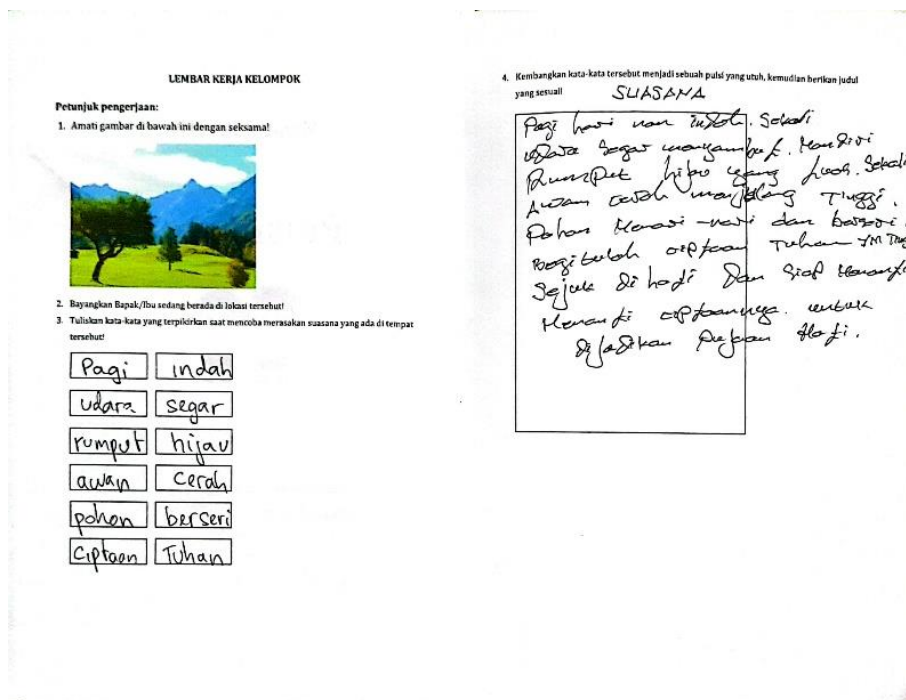 LEMBAR KERJA KELOMPOK
Petunjuk pengerjaan:
1. Amati gambar di bawah ini dengan seksama!
2. Bayangkan Bapak/Ibu sedang berada di lokasi tersebut!
3. Tuliskan kata-kata yang terpikirkan saat mencoba merasakan suasana yang ada di tempat
tersebut!
Pagi indah
udara segar
rumput hijau
awan Cerah
pohon berseri
Ciptaan Tuhan
4. Kembangkan kata-kata tersebut menjadi sebuah puisi yang utuh, kemudian berikan judul
yang sesuai!
SUASANA
Pagi hari nan indah. Sekali
udara Segar
Rumput hijau yang Sekali
Awan cerah Tinggi.
Pohon Menari-nari dan berseri.
Begitulah ciptaan Tuhan YM
Sejuk di hati Dan Siap
ciptaannya. untuk
dijadikan Hati.